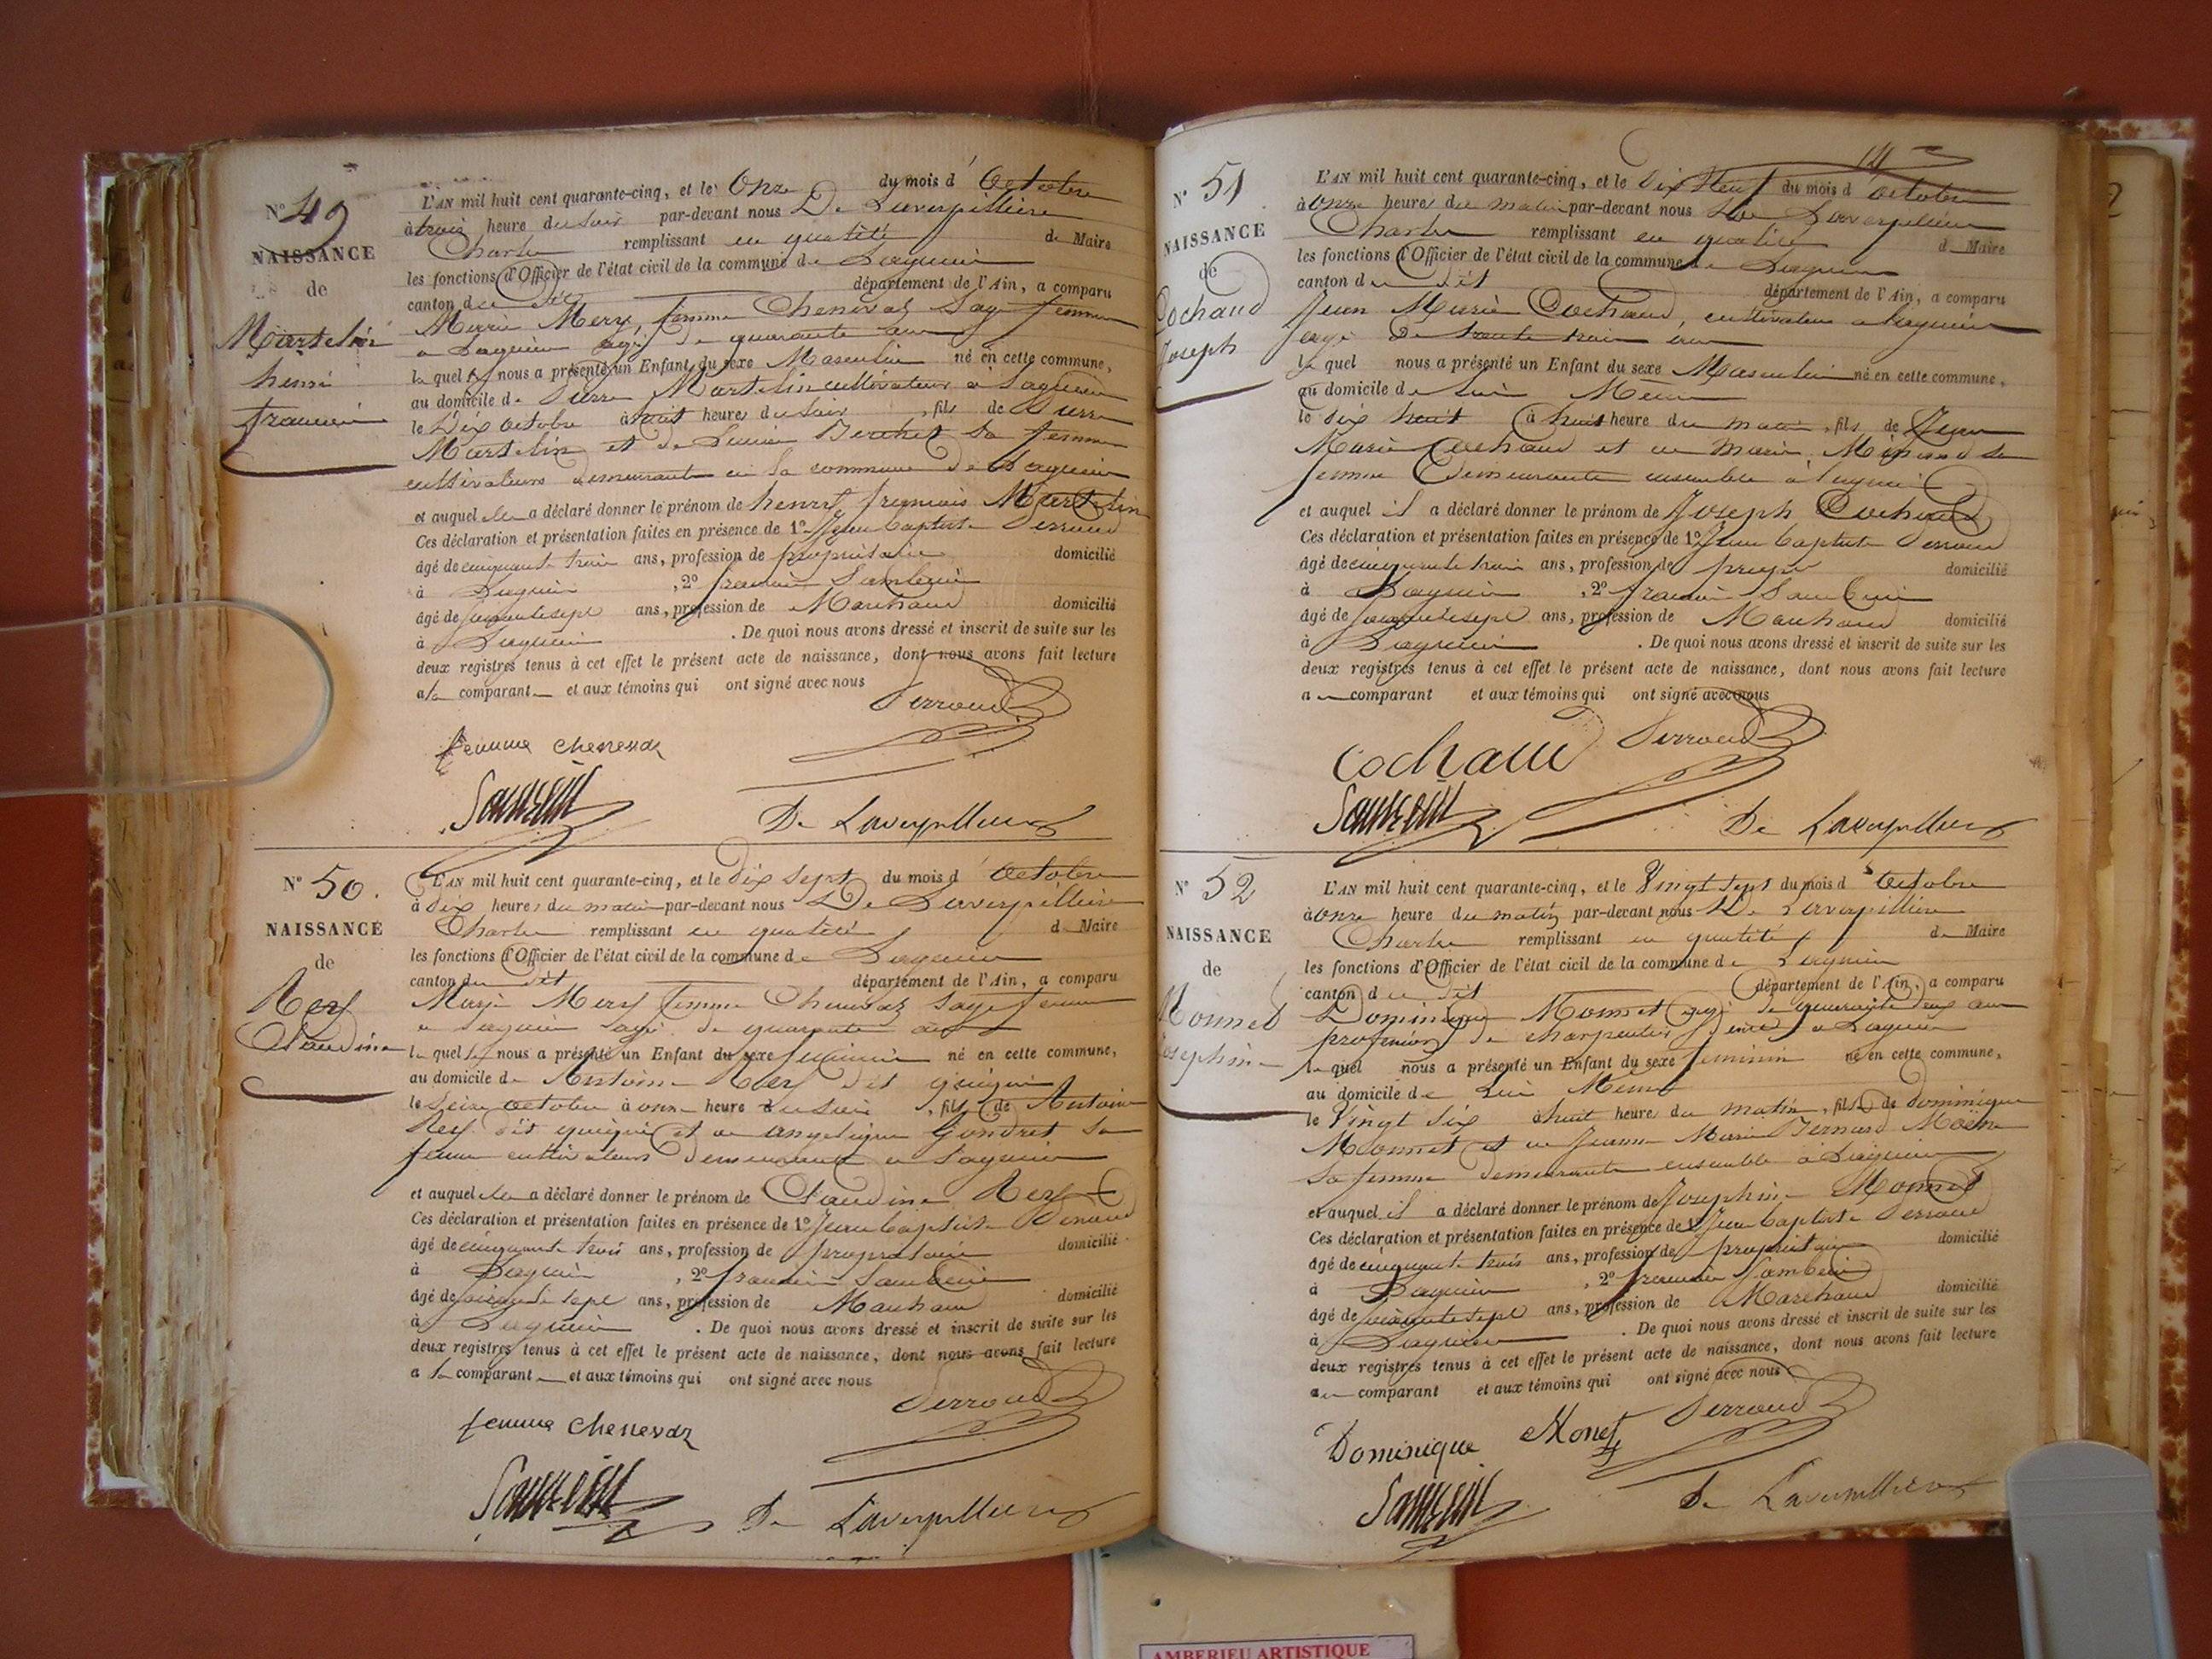 N° 49
NAISSANCE
de
Martelin
henri
francois
L'AN mil huit cent quarante-cinq, et le Onze du mois d' Octobre
à trois heure du soir par-devant nous De Laverpillière
Charles remplissant en qualité de Maire
les fonctions d'Officier de l'état civil de la commune de Lagnieu
canton du dit département de l'Ain, a comparu
Marie Mery, femme Chenevaz Sage femme
a Lagnieu agé de quarante ans
la quel nous a présenté un Enfant du sexe Masculin né en cette commune,
au domicile de Pierre Martelin cultivateur à Lagnieu
le Dix octobre à huit heures du soir, fils de Pierre
Martelin et de Berthet sa femme
cultivateurs demeurant en la commune de Lagnieu
et auquel elle a déclaré donner le prénom de henry francois Martelin
Ces déclaration et présentation faites en présence de 1° Jean baptiste Perroud
âgé de cinquante trois ans, profession de propriétaire domicilié
à Lagnieu, 2° francois Sambuin
âgé de soixante sept ans, profession de Marchand domicilié
à Lagnieu. De quoi nous avons dressé et inscrit de suite sur les
deux registres tenus à cet effet le présent acte de naissance, dont nous avons fait lecture
a la comparante et aux témoins qui ont signé avec nous
Perroud
femme chenevaz
De Laverpilliere
N° 50.
NAISSANCE
de
Rey
Claudine
L'AN mil huit cent quarante-cinq, et le dix sept du mois d' Octobre
à dix heures du matin par-devant nous De Laverpillière
Charles remplissant en qualité de Maire
les fonctions d'Officier de l'état civil de la commune de Lagnieu
canton du dit département de l'Ain, a comparu
Marie Mery femme Chenevaz Sage femme
a Lagnieu agé de quarante ans
la quel nous a présenté un Enfant du sexe feminin né en cette commune,
au domicile de Antoine Rey dit
le seize octobre à onze heure du soir, fils de Antoine
Rey dit et de angelique Gondret sa
femme cultivateurs demeurant a Lagnieu
et auquel elle a déclaré donner le prénom de Claudine Rey
Ces déclaration et présentation faites en présence de 1° Jean baptiste Perroud
âgé de cinquante trois ans, profession de propriétaire domicilié
à Lagnieu, 2° francois Sambuin
âgé de soixante sept ans, profession de Marchand domicilié
à Lagnieu. De quoi nous avons dressé et inscrit de suite sur les
deux registres tenus à cet effet le présent acte de naissance, dont nous avons fait lecture
a la comparante et aux témoins qui ont signé avec nous
Perroud
femme chenevaz
De Laverpilliere
N° 51
NAISSANCE
de
Cochaud
Joseph
L'AN mil huit cent quarante-cinq, et le dix Neuf du mois d' octobre
à onze heures du matin par-devant nous De Laverpillière
Charles remplissant en qualité de Maire
les fonctions d'Officier de l'état civil de la commune de Lagnieu
canton du dit département de l'Ain, a comparu
Jean Marie Cochaud, cultivateur a Lagnieu
agé de trente trois ans
le quel nous a présenté un Enfant du sexe Masculin né en cette commune,
au domicile de lui Même
le dix huit à huit heure du matin, fils de Jean
Marie Cochaud et de Marie sa
femme demeurants ensemble à Lagnieu
et auquel il a déclaré donner le prénom de Joseph Cochaud
Ces déclaration et présentation faites en présence de 1° Jean baptiste Perroud
âgé de cinquante trois ans, profession de propre domicilié
à Lagnieu, 2° francois Sambuin
âgé de soixante sept ans, profession de Marchand domicilié
à Lagnieu. De quoi nous avons dressé et inscrit de suite sur les
deux registres tenus à cet effet le présent acte de naissance, dont nous avons fait lecture
au comparant et aux témoins qui ont signé avec nous
Cochaud Perroud
De Laverpilliere
N° 52
NAISSANCE
de
Monnet
Josephine
L'AN mil huit cent quarante-cinq, et le Vingt sept du mois d' Octobre
à onze heure du matin par-devant nous De Laverpillière
Charles remplissant en qualité de Maire
les fonctions d'Officier de l'état civil de la commune de Lagnieu
canton du dit département de l'Ain, a comparu
Dominique Monnet agé de quarante deux ans
profession de charpentier a Lagnieu
le quel nous a présenté un Enfant du sexe feminin né en cette commune,
au domicile de Lui Même
le Vingt six à huit heure du matin, fils de dominique
Monnet et de Jeanne Marie Bernard
sa femme demeurants ensemble à Lagnieu
et auquel il a déclaré donner le prénom de Josephine Monnet
Ces déclaration et présentation faites en présence de 1° Jean baptiste Perroud
âgé de cinquante trois ans, profession de propriétaire domicilié
à Lagnieu, 2° francois Sambuin
âgé de soixante sept ans, profession de Marchand domicilié
à Lagnieu. De quoi nous avons dressé et inscrit de suite sur les
deux registres tenus à cet effet le présent acte de naissance, dont nous avons fait lecture
au comparant et aux témoins qui ont signé avec nous
Dominique Monet Perroud
De Laverpilliere
AMBERIEU ARTISTIQUE